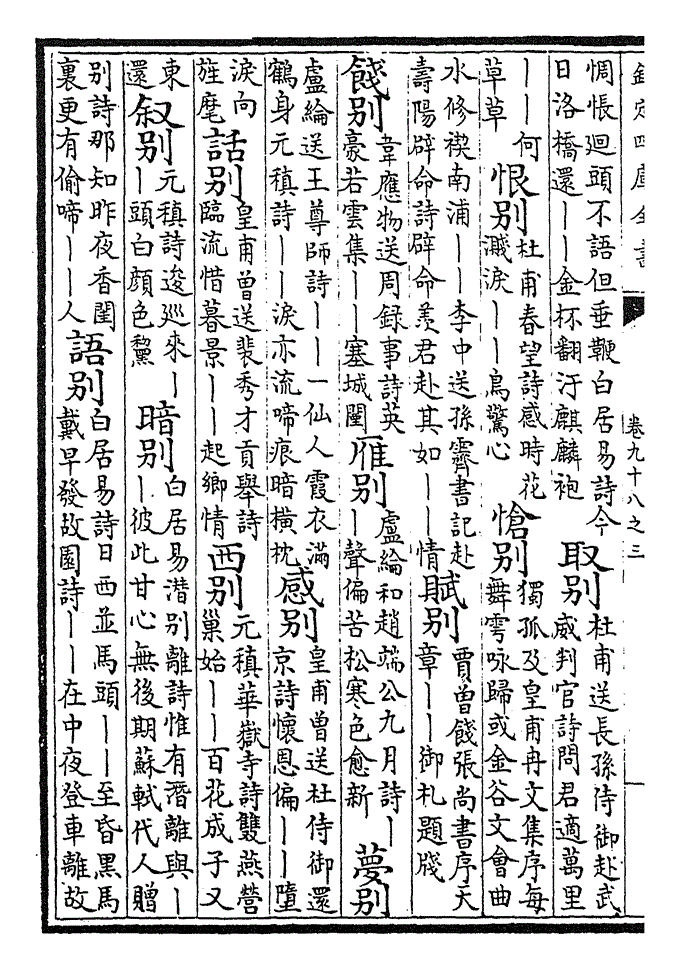 欽定四庫全書
卷九十八之三
惆悵迴頭不語但垂鞭白居易詩今
日洛橋還——金杯翻汙麒麟袍
取别
杜甫送長孫侍御赴武
威判官詩問君適萬里
——何
草草
恨别
杜甫春望詩感時花
濺淚——鳥驚心
愴别
獨孤及皇甫冉文集序每
舞雩咏歸或金谷文會曲
水修禊南浦——李中送孫霽書記赴
壽陽辟命詩辟命羨君赴其如——情
賦别
賈曾餞張尚書序天
章——御札題牋
餞别
韋應物送周録事詩英
豪若雲集——塞城闉
雁别
盧綸和趙端公九月詩—
—聲偏苦松寒色愈新
夢别
盧綸送王尊師詩——一仙人霞衣滿
鶴身元稹詩——淚亦流啼痕暗橫枕
感别
皇甫曾送杜侍御還
京詩懷恩偏——墮
淚向
旌麾
話别
皇甫曾送裴秀才貢舉詩
臨流惜暮景——起鄉情
西别
元稹華嶽寺詩雙燕營
巢始——百花成子又
東
還
叙别
元稹詩逡巡來—
—頭白顏色黧
暗别
白居易潛别離詩惟有潛離與—
—彼此甘心無後期蘇軾代人贈
别詩那知昨夜香閨
裏更有偷啼——人
語别
白居易詩日西並馬頭——至昏黑馬
戴早發故園詩——在中夜登車離故